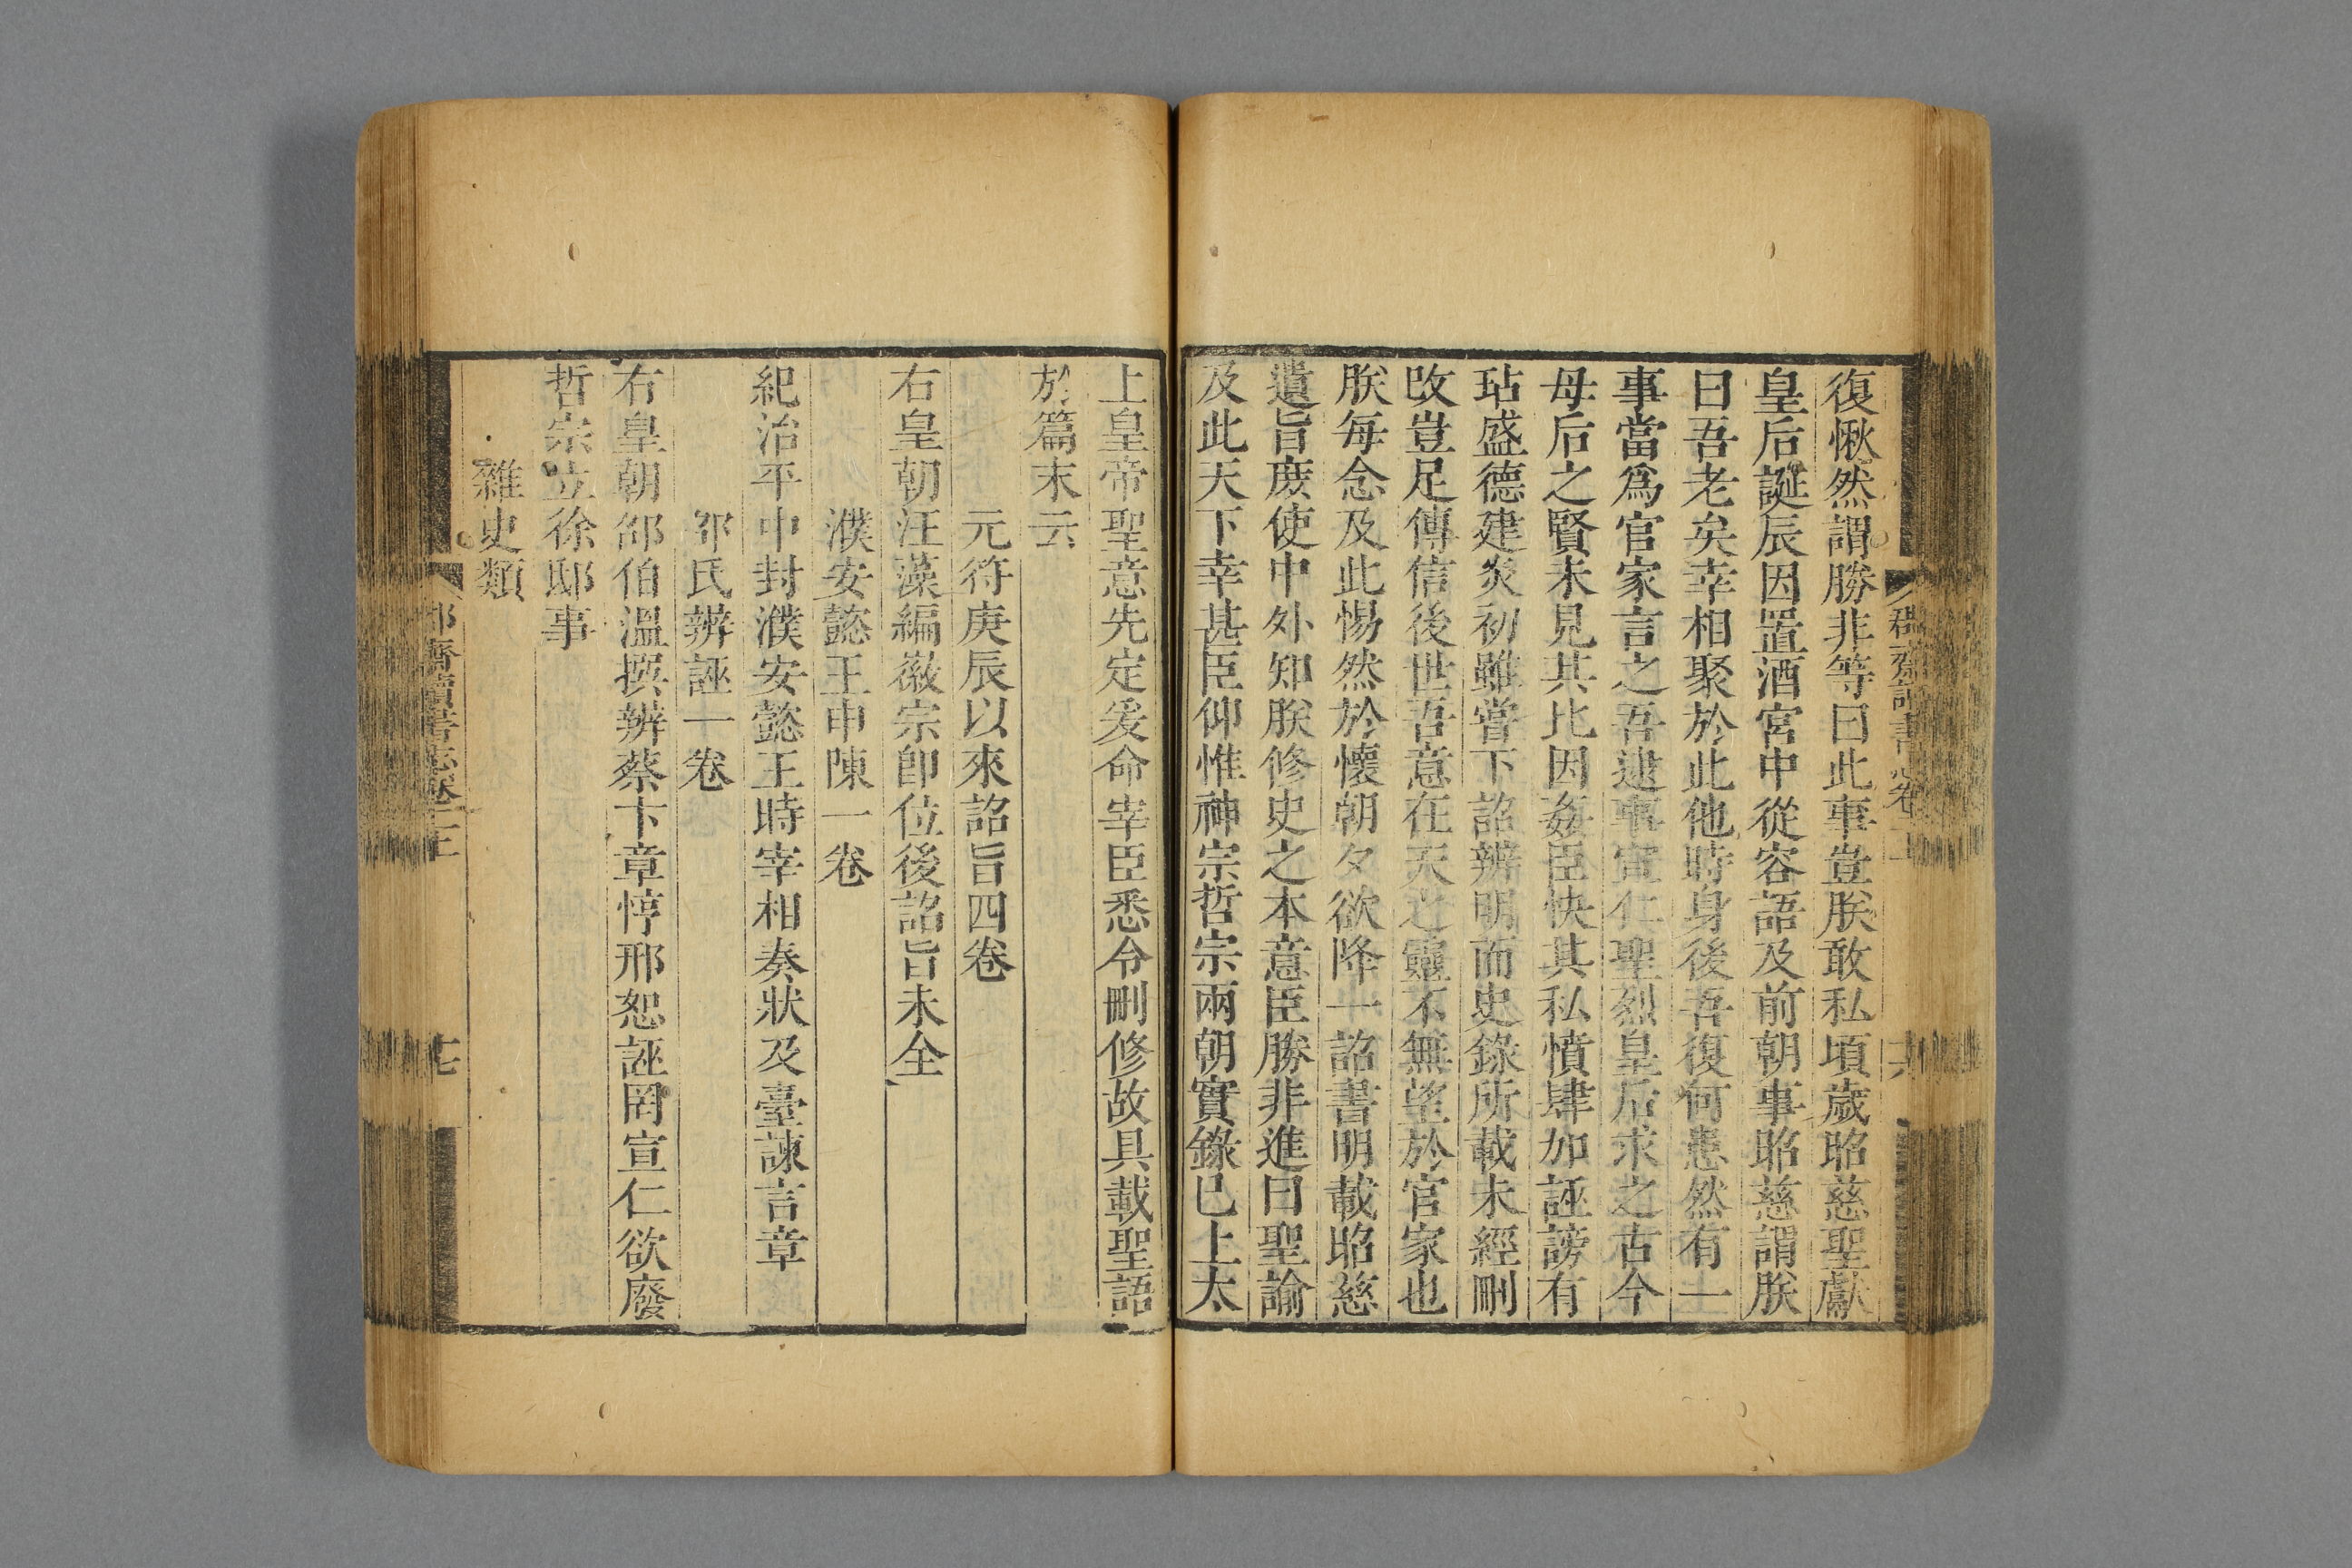 復愀然謂勝非等曰此事豈朕敢私頃歲昭慈聖獻
皇后誕辰因置酒宮中從容語及前朝事昭慈謂朕
曰吾老矣幸相聚於此他時身後吾復何患然有一
事當爲官家言之吾逮事宣仁聖烈皇后求之古今
母后之賢未見其比因姦臣快其私憤肆加誣謗有
玷盛德建炎初雖嘗下詔辨明而史錄所載未經刪
改豈足傳信後世吾意在天之靈不無望於官家也
朕每念及此惕然於懷朝夕欲降一詔書明載昭慈
遺旨庶使中外知朕修史之本意臣勝非進曰聖諭
及此天下幸甚臣仰惟神宗哲宗兩朝實錄已上太
上皇帝聖意先定爰命宰臣悉令刪修故具載聖語
於篇末云
元符庚辰以來詔旨四卷
右皇朝汪藻編徽宗卽位後詔旨未全
濮安懿王申陳一卷
紀治平中封濮安懿王時宰相奏狀及臺諫言章
邵氏辨誣一卷
右皇朝邵伯溫撰辨蔡卞章惇邢恕誣罔宣仁欲廢
哲宗立徐邸事
雜史類
郡齋讀書志卷二上
七